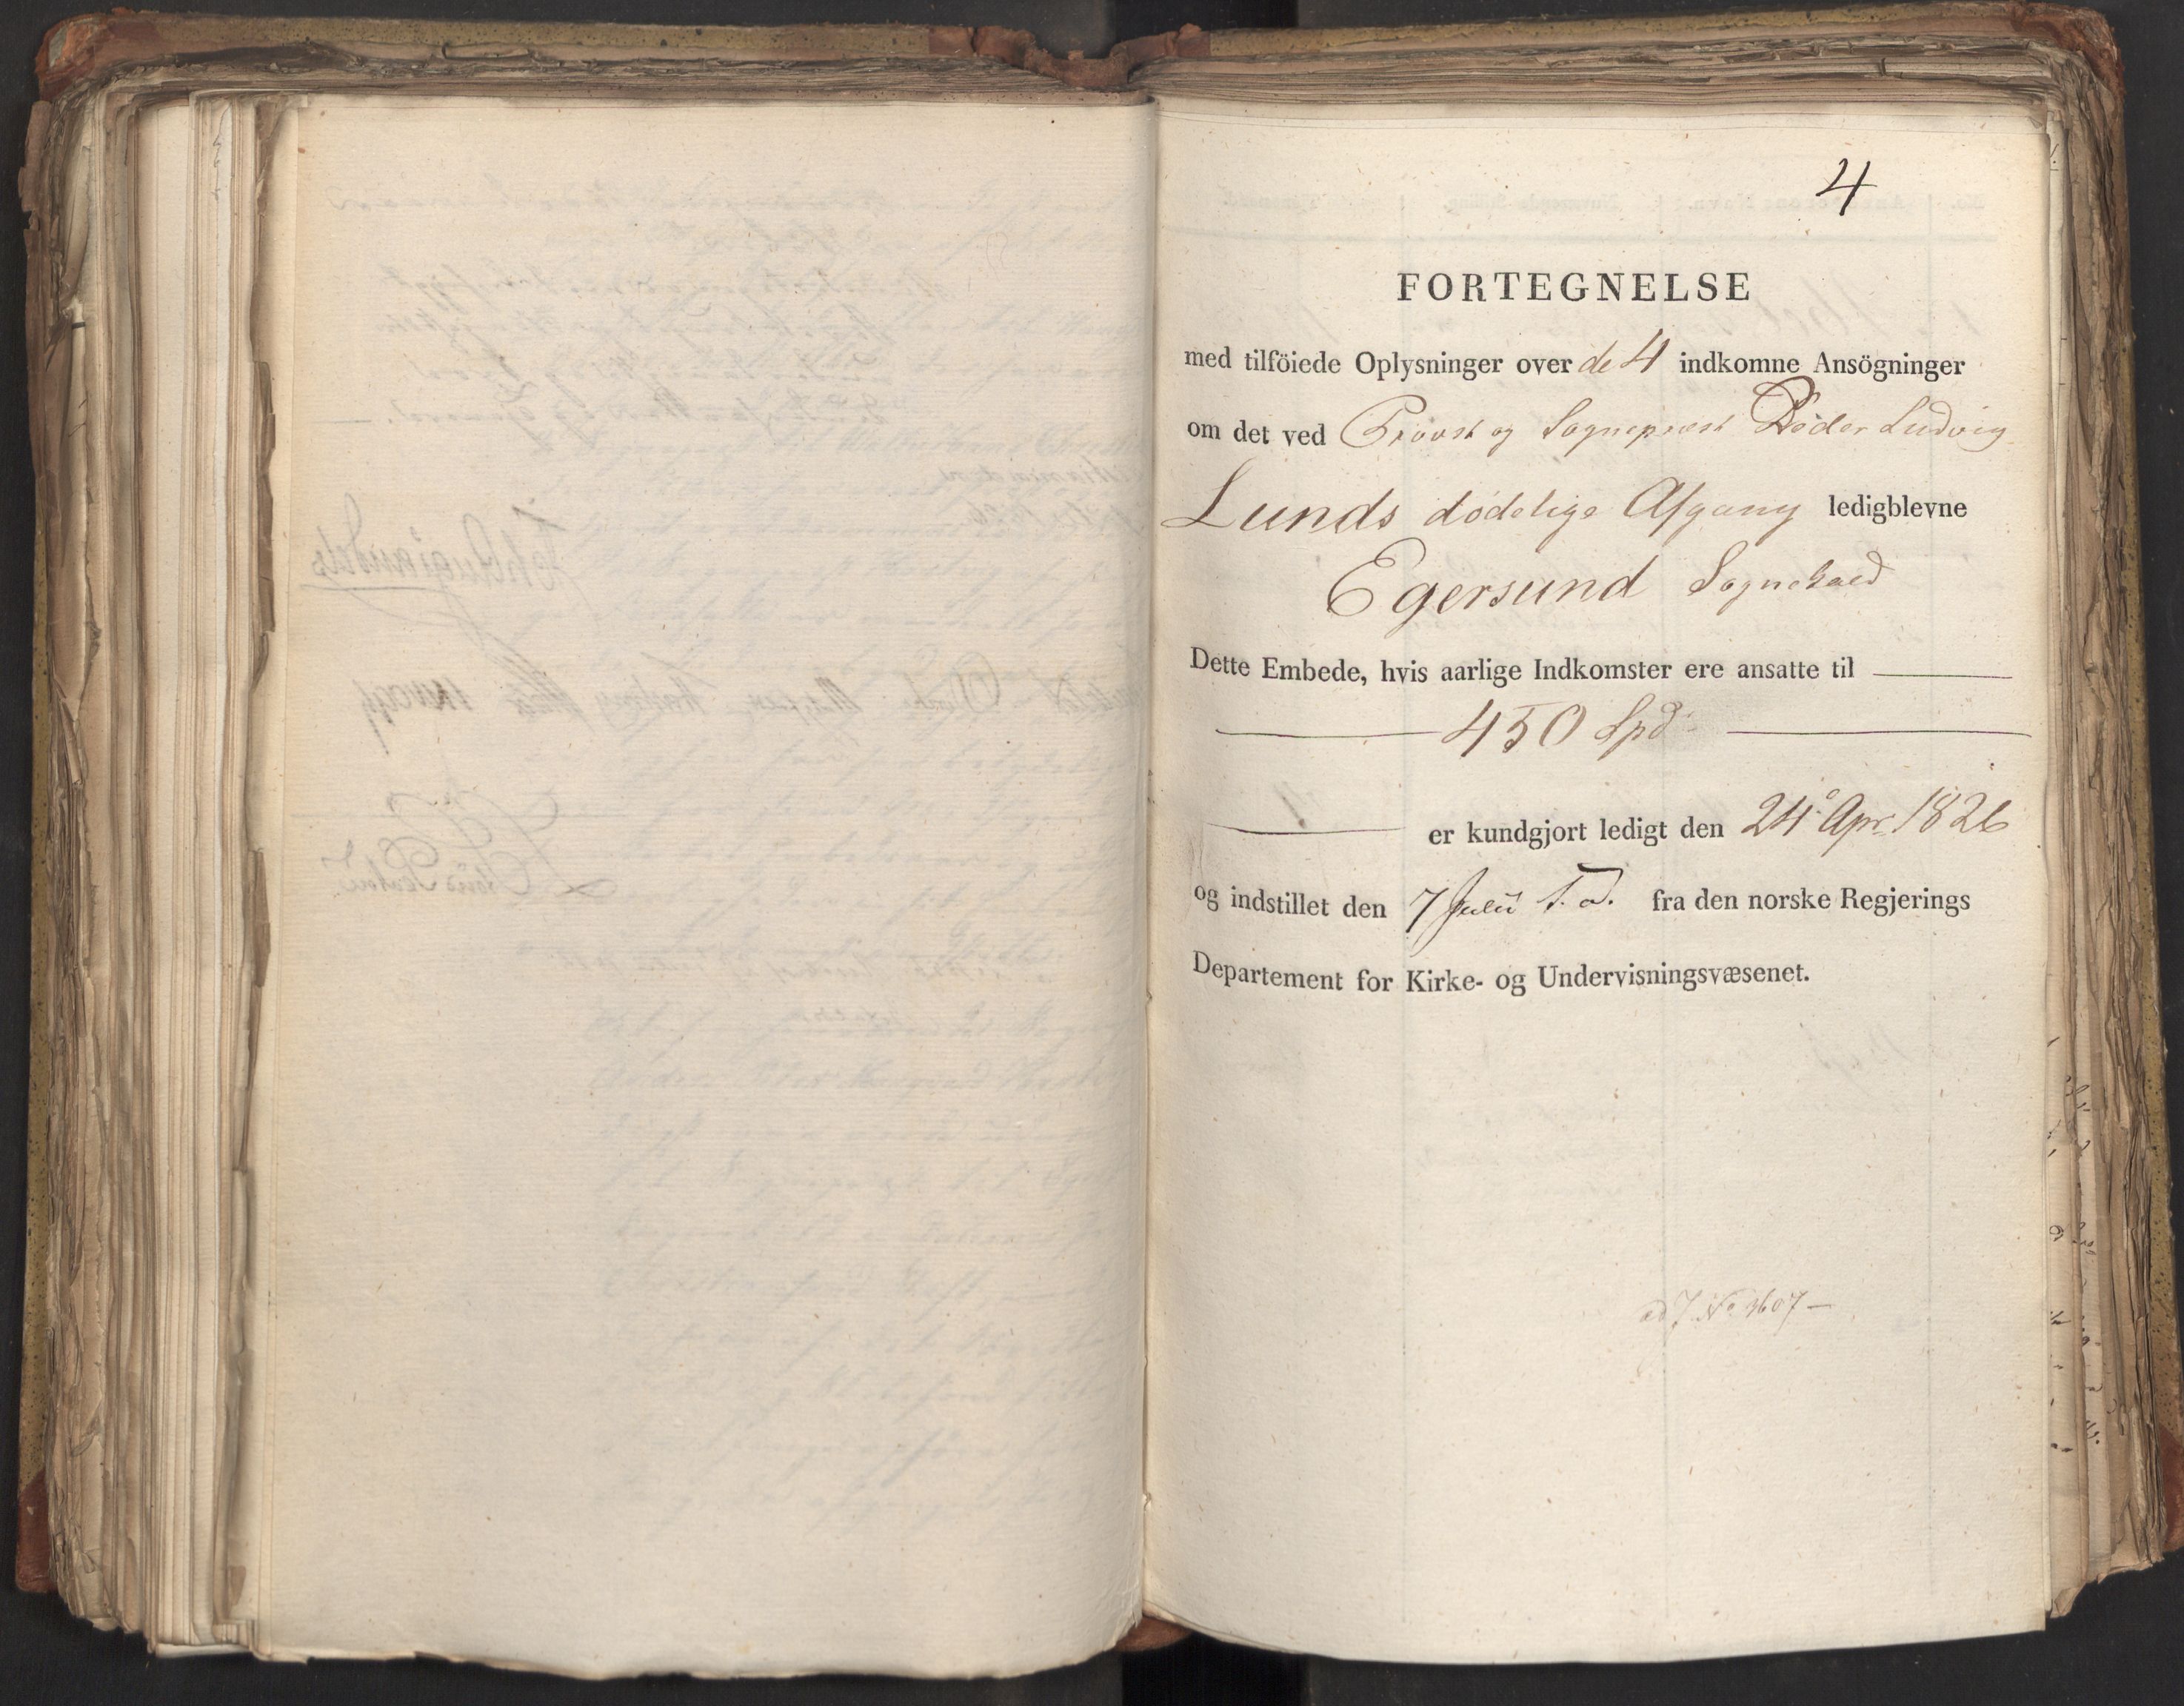 4
FORTEGNELSE
med tilföiede Oplysninger over de 4 indkomne Ansögninger
om det ved Provst og Sognepræst Peder Ludvig
Lunds dødelige Afgang ledigblevne
Egersund Sognekald
Dette Embede, hvis aarlige Indkomster ere ansatte til
450 Spd
er kundgjort ledigt den 24. Apr. 1826
og indstillet den 7 Julii s. A. fra den norske Regjerings
Departement for Kirke- og Undervisningsvæsenet.
ad J. No 1607